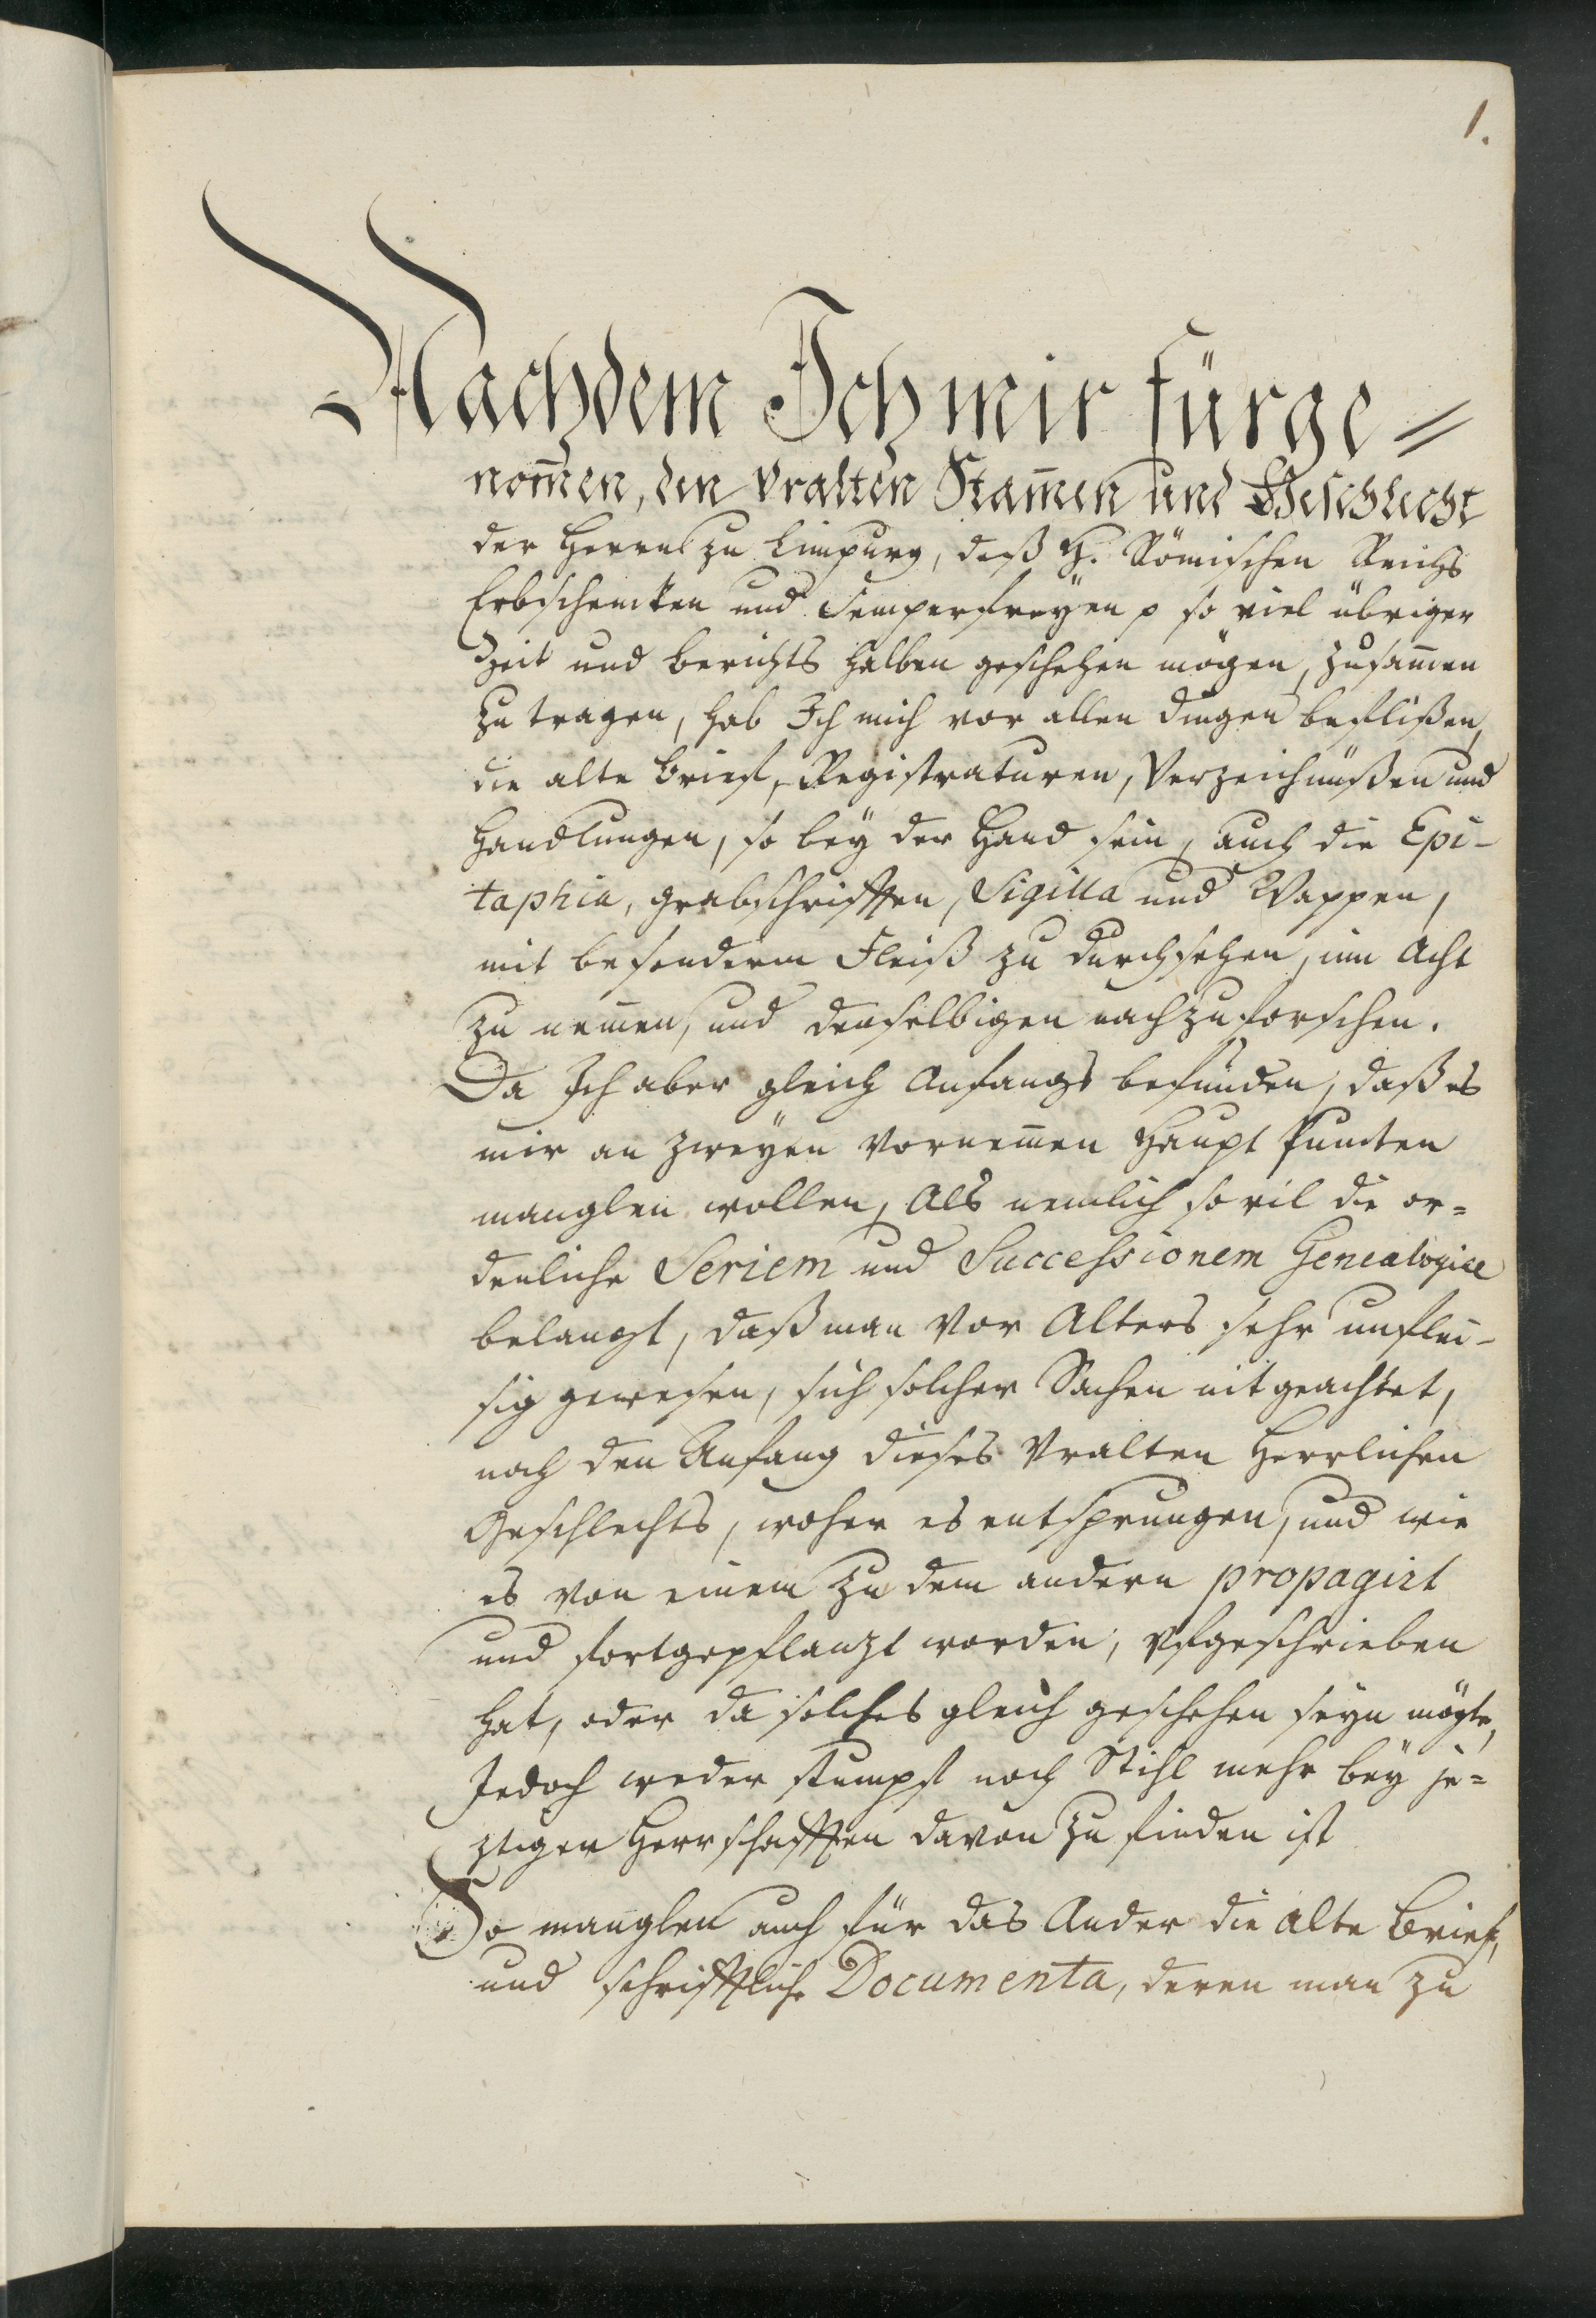 1.
Nachdem Ich mir fürge=
nom̅en, den Vralten Stam̅en und Geschlecht
der Herren zu Limpurg, deß H. Römischen Reichs
Erbschencken und Semperfreÿen p so viel übriger
Zeit und berichts halben geschehen mögen, zusam̅en
zu tragen, hab Ich mich vor allen dingen beflißen,
die alte brief, Registraturen, Verzeichnüßen und
Handlungen, so beÿ der Hand sein, auch die Epi-
taphia, grabschrifften, Sigilla und Wappen,
mit besonderm Fleiß zu durchsehen, inn Acht
zu nem̅en, und denselbigen nachzuforschen.
Da Ich aber gleich Anfangs befunden, daß es
mir an zweÿen Vornem̅en Haupt Puncten
manglen wollen, Als nemlich so vil die or=
denliche Seriem und Successionem Genealogiae
belangt, daß man Vor Alters sehr unflei-
sig gewesen, sich solcher Sachen nit geachtet,
noch den Anfang dieses Vralten Herrlichen
Geschlechts, woher es entsprungen, und wie
es von einem zu dem andern propagirt
und fortgepflanzt worden, Vfgeschrieben
hat, oder da solches gleich geschehen seÿn mögte,
Jedoch weder stumpf noch Stihl mehr beÿ je=
ztiger Herrschafften davon zu finden ist
So manglen auch für das Ander die alte Brief,
und schrifftliche Documenta, deren man zu